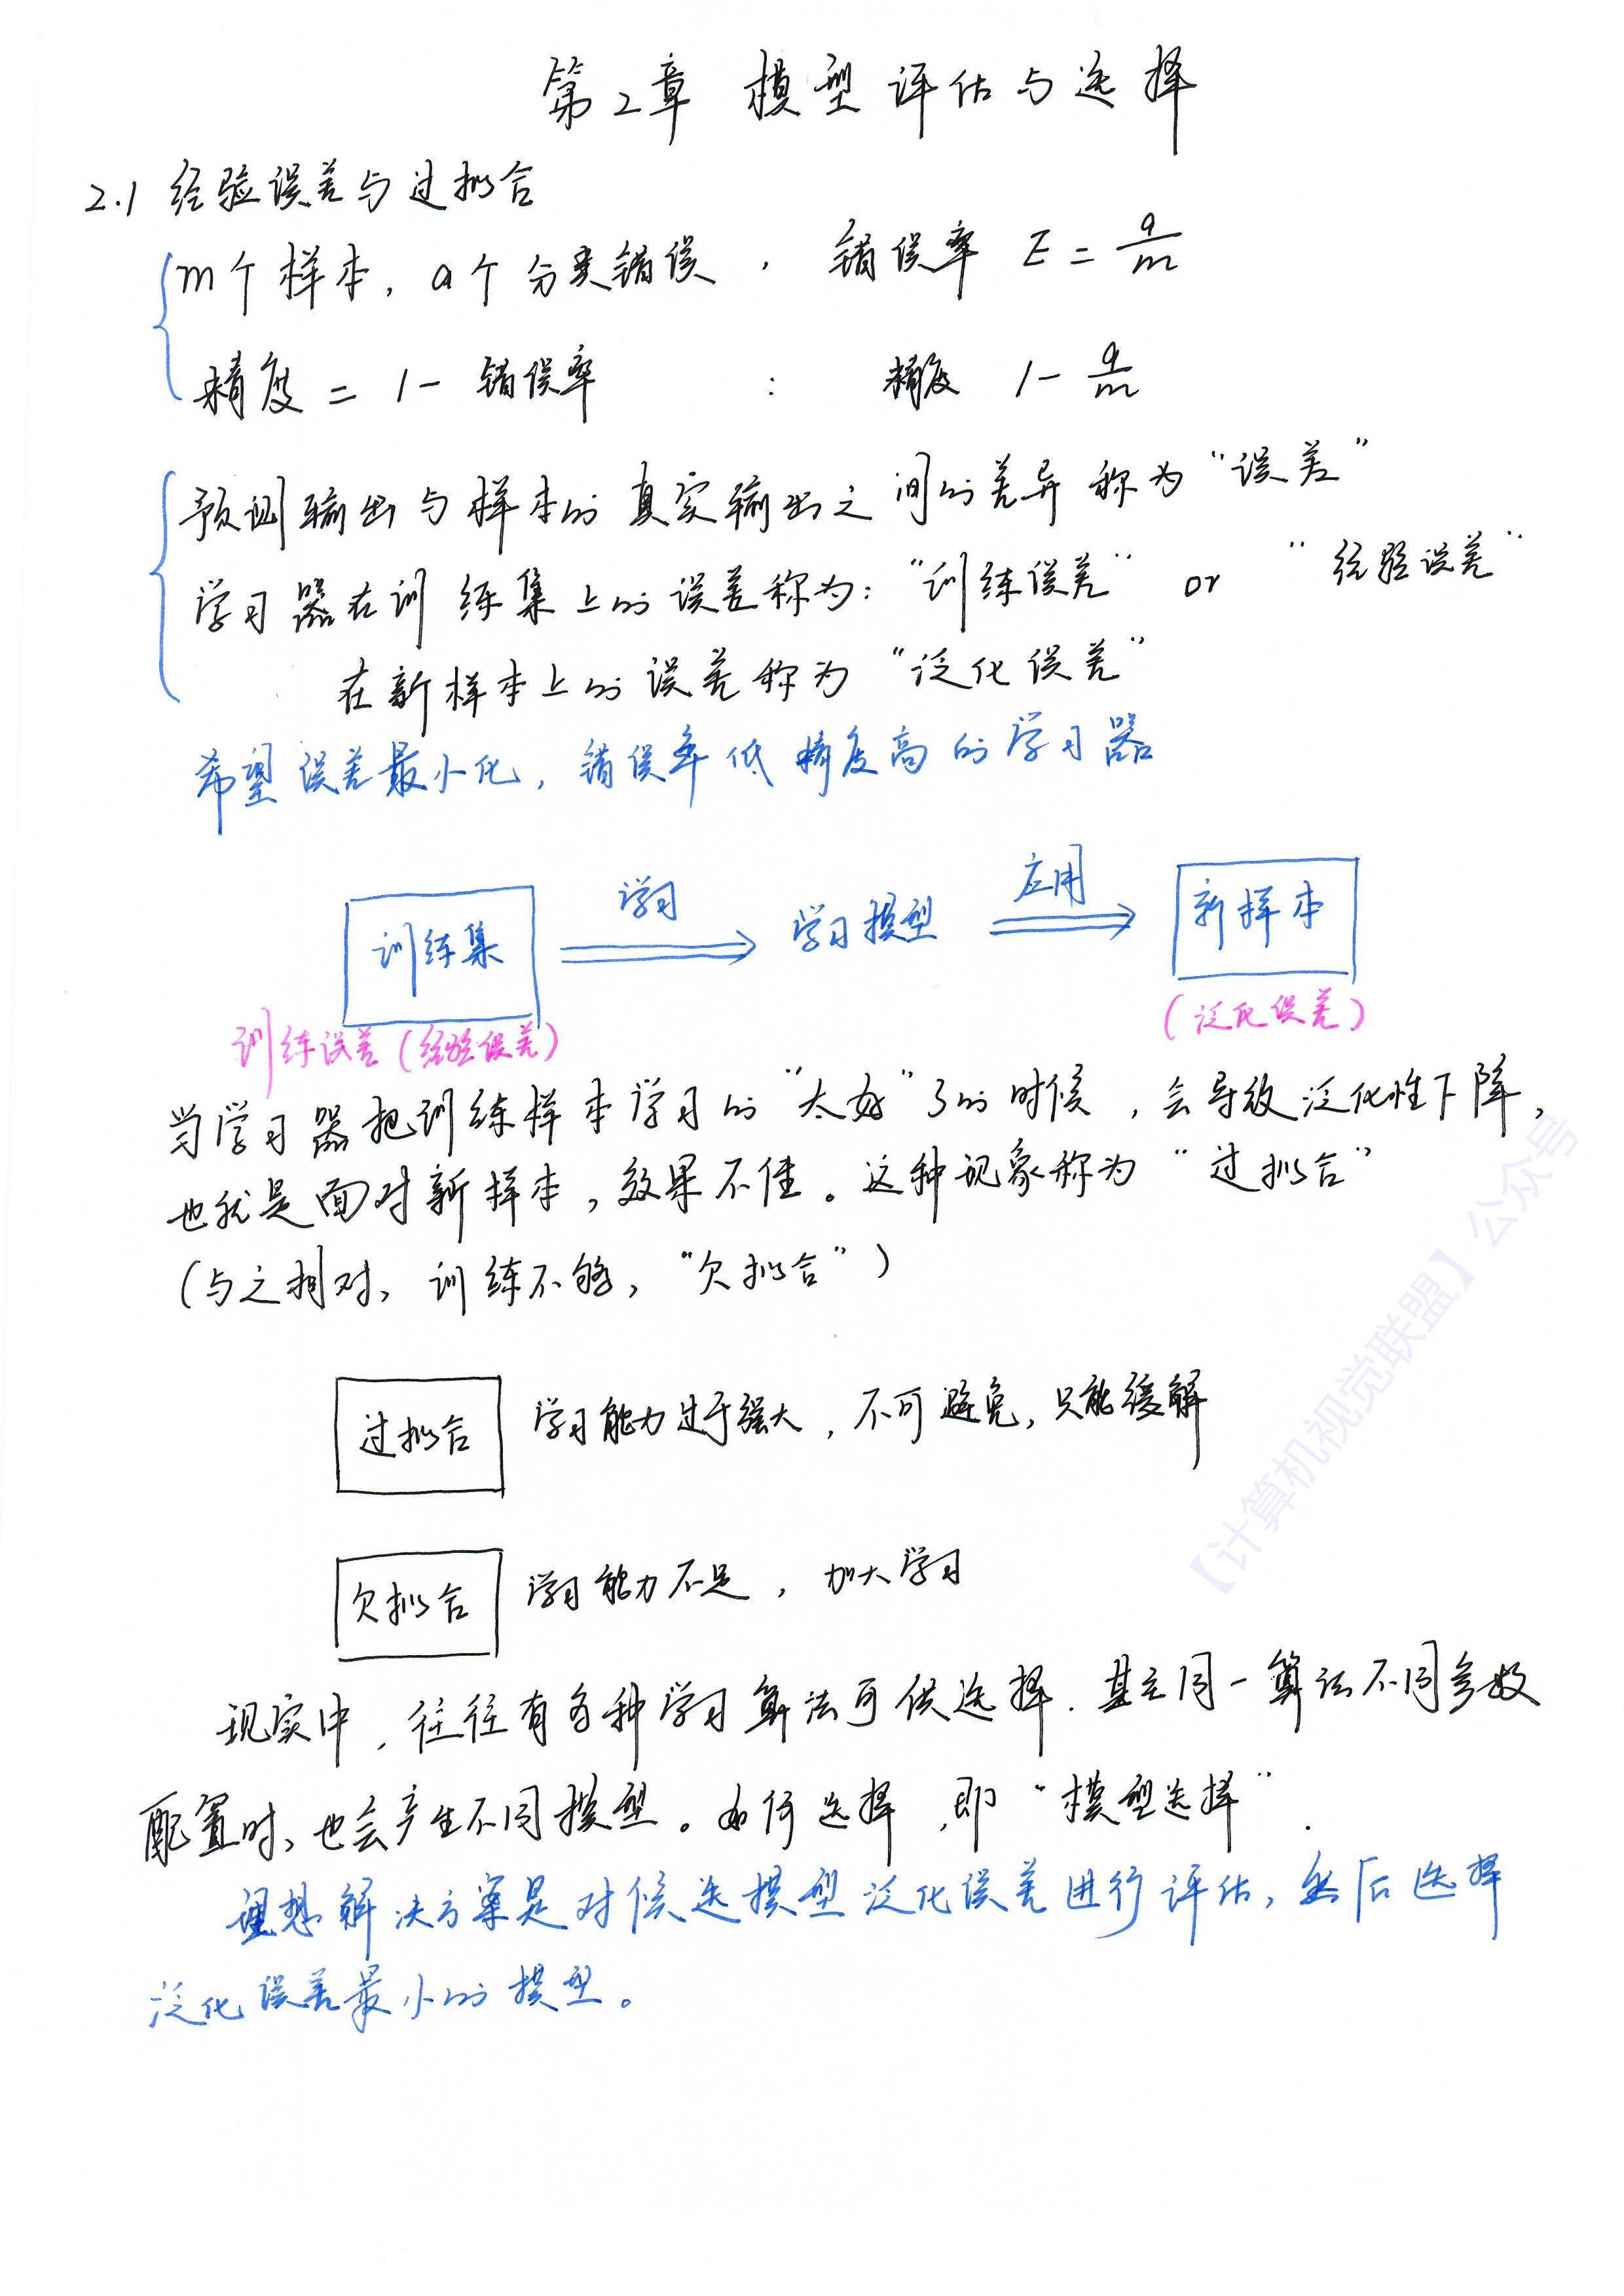 第2章 模型评估与选择
2.1 经验误差与过拟合
m个样本，a个分类错误， 错误率 E = a/m
精度 = 1 - 错误率 : 精度 1 - a/m
预测输出与样本的真实输出之间的差异称为“误差”
学习器在训练集上的误差称为：“训练误差” or “经验误差”
在新样本上的误差称为“泛化误差”
希望误差最小化，错误率低精度高的学习器
训练集 学习 学习模型 应用 新样本
训练误差（经验误差） （泛化误差）
当学习器把训练样本学习的“太好”了的时候，会导致泛化性下降，
也就是面对新样本，效果不佳。这种现象称为“过拟合”
（与之相对，训练不够，“欠拟合”）
过拟合 学习能力过于强大，不可避免，只能缓解
欠拟合 学习能力不足，加大学习
现实中，往往有多种学习算法可供选择. 甚至同一算法不同参数
配置时，也会产生不同模型。如何选择，即“模型选择”.
理想解决方案是对候选模型泛化误差进行评估，然后选择
泛化误差最小的模型。
【计算机视觉联盟】公众号